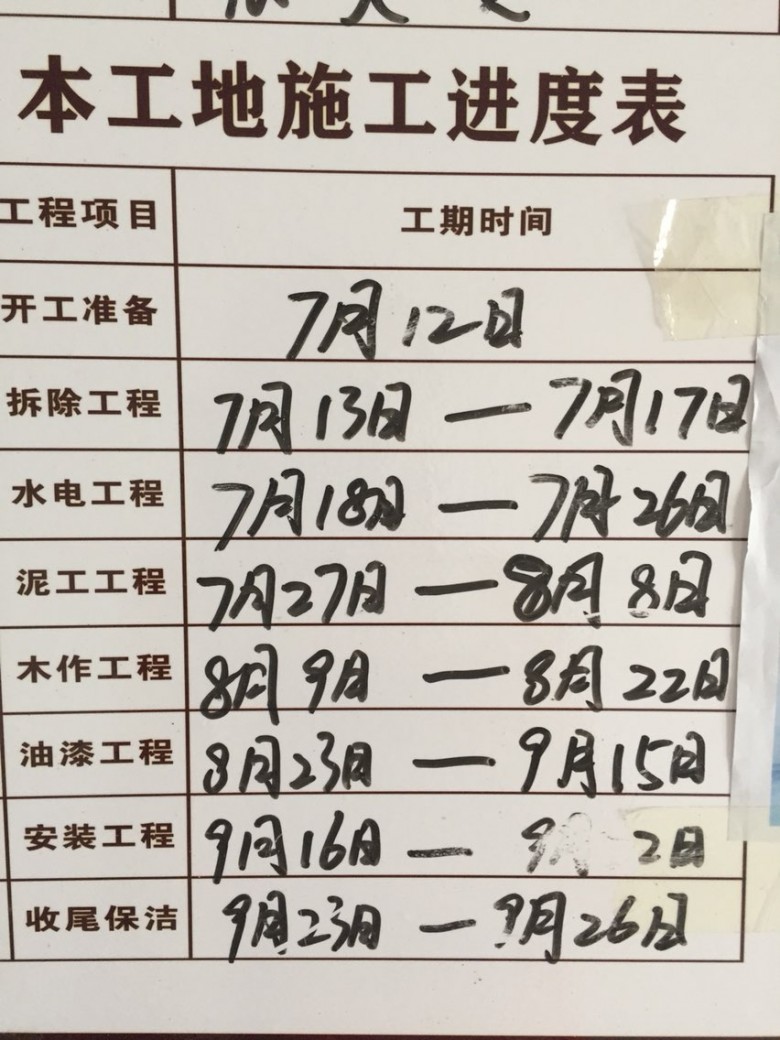 本工地施工进度表
工程项目 工期时间
开工准备 7月12日
拆除工程 7月13日 — 7月17日
水电工程 7月18日 — 7月26日
泥工工程 7月27日 — 8月8日
木作工程 8月9日 — 8月22日
油漆工程 8月23日 — 9月15日
安装工程 9月16日 — 9月 2日
收尾保洁 9月23日 — 9月26日